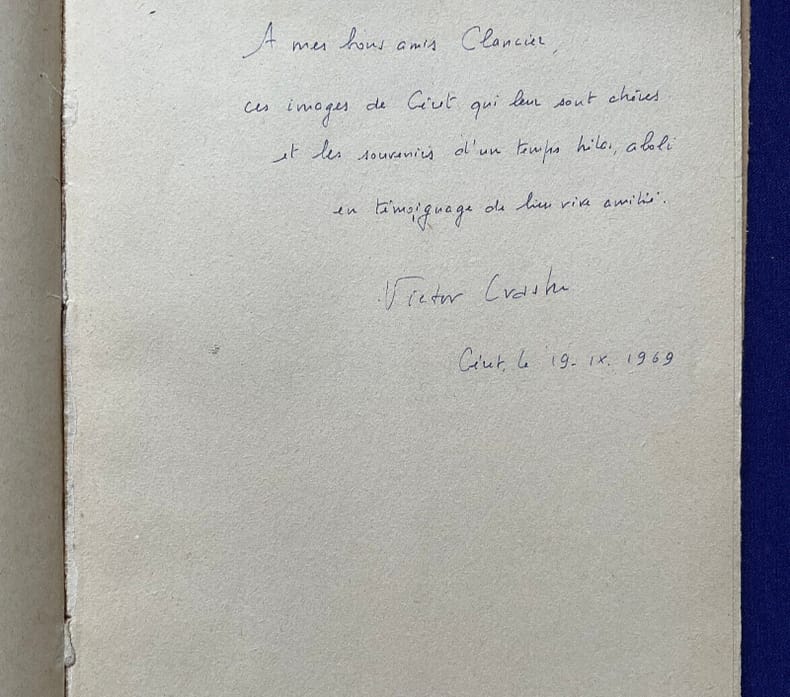 A mes bons amis Clancier,
ces images de Céret qui leur sont chères
et les souvenirs d'un temps hélas, aboli
en témoignage de bien vive amitié.
Victor Crastre
Céret, le 19. IX. 1969